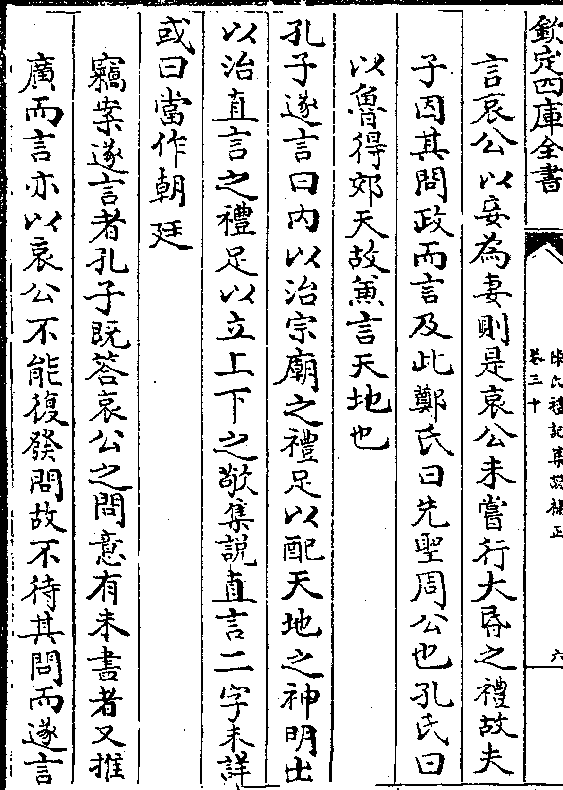 欽定四庫全書
陳氏禮記集說補正
卷三十
六
言哀公以妾為妻則是哀公未嘗行大昏之禮故夫
子因其問政而言及此鄭氏曰先聖周公也孔氏曰
以魯得郊天故兼言天地也
孔子遂言曰內以治宗廟之禮足以配天地之神明出
以治直言之禮足以立上下之敬集說直言二字未詳
或曰當作朝廷
竊案遂言者孔子既答哀公之問意有未盡者又推
廣而言亦以哀公不能復發問故不待其問而遂言